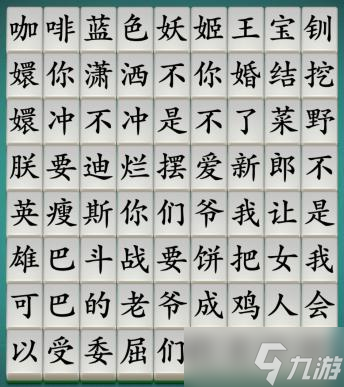 咖啡蓝色妖姬王宝钏
嬛你潇洒不你婚结挖
嬛冲不冲是不了菜野
朕要迪烂摆爱新郎不
英瘦斯你们爷我让是
雄巴斗战要饼把女我
可巴的老爷成鸡人会
以受委屈们
九游